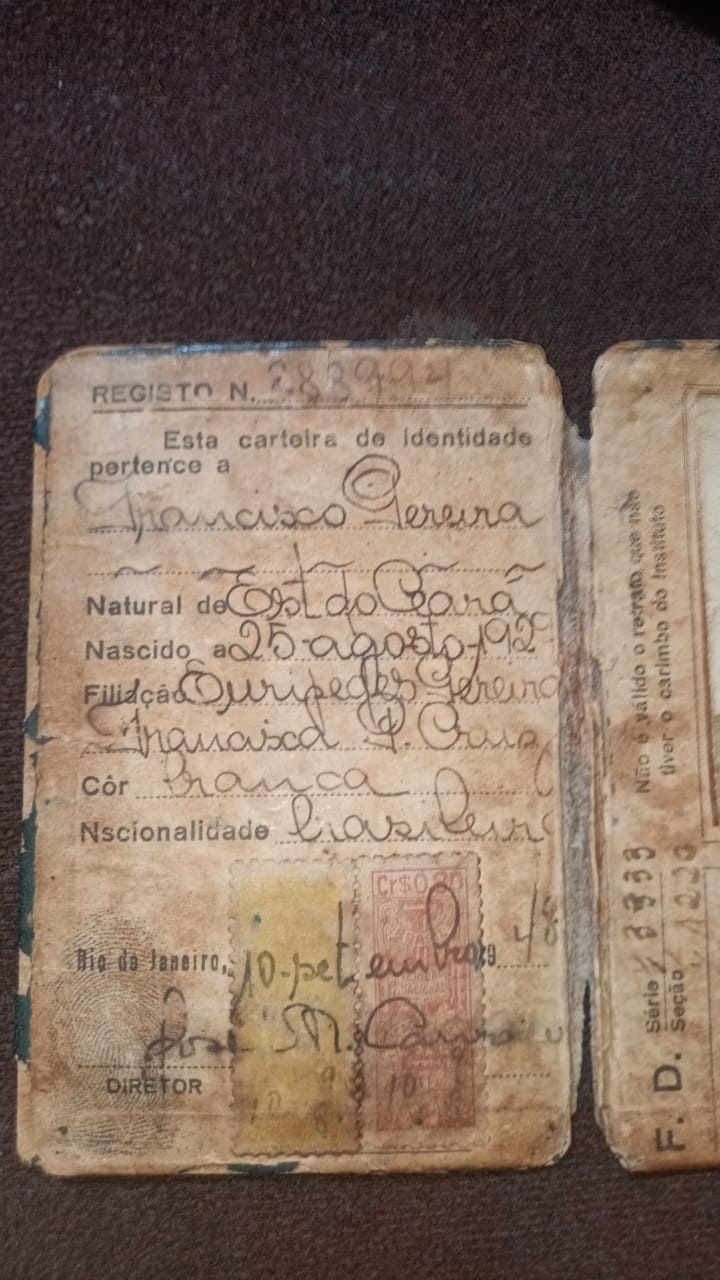 REGISTO N. 283994
Esta carteira de identidade
pertence a
Francisco Pereira
Natural de Est do Ceará
Nascido a 25-agosto-192
Filiação Euripedes Pereira
Francisca P. Cruz
Côr branca
Nscionalidade brasileir
Cr$0,80
Rio de Janeiro, 10-setembro 19 48
José M.
DIRETOR
10 9
10
Não é válido o retrato que não
tiver o carimbo do Instituto
F. D. Série
Seção